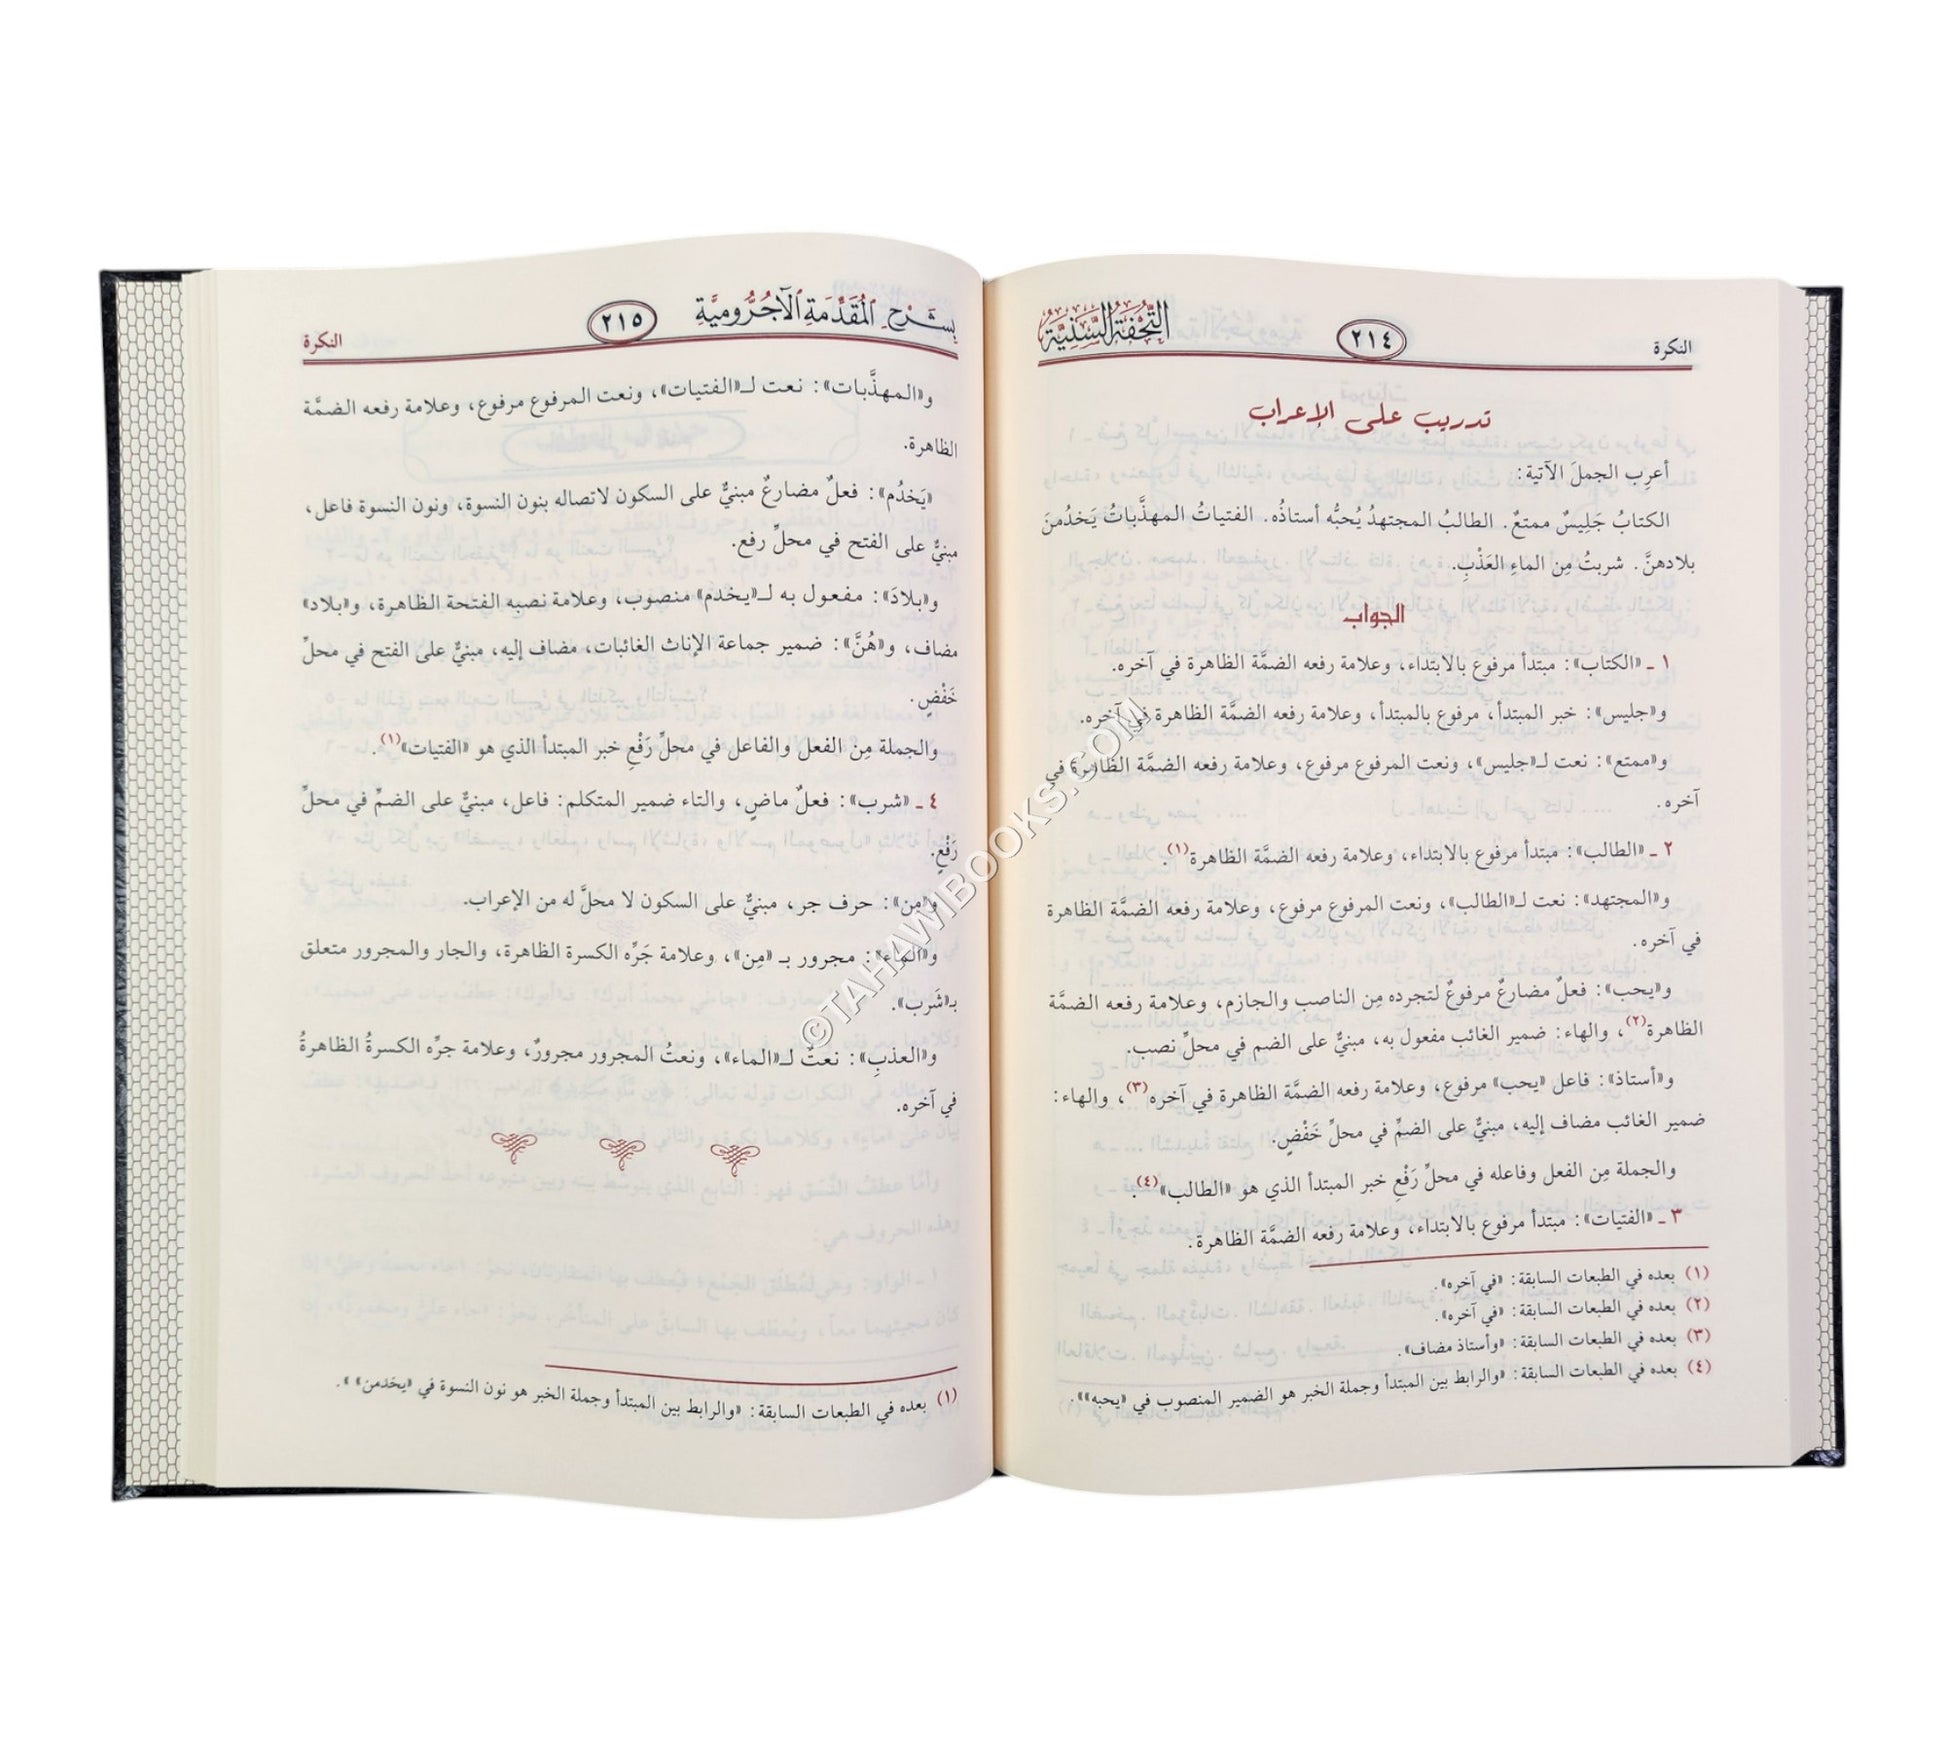 النكرة
٢١٤
التُّحْفَةُ السَّنِيَّة
تدريب على الإعراب
أعرِب الجملَ الآتية:
الكتابُ جَلِيسٌ ممتعٌ. الطالبُ المجتهدُ يُحبُّه أستاذُه. الفتياتُ المهذَّباتُ يَخدُمنَ
بلادهنَّ. شربتُ مِن الماءِ العَذْبِ.
الجواب
١ ـ «الكتاب»: مبتدأ مرفوع بالابتداء، وعلامة رفعه الضمَّة الظاهرة في آخره.
و«جليس»: خبر المبتدأ، مرفوع بالمبتدأ، وعلامة رفعه الضمَّة الظاهرة في آخره.
و«ممتع»: نعت لـ«جليس»، ونعت المرفوع مرفوع، وعلامة رفعه الضمَّة الظاهرة في
آخره.
٢ ـ «الطالب»: مبتدأ مرفوع بالابتداء، وعلامة رفعه الضمَّة الظاهرة(١).
و«المجتهد»: نعت لـ«الطالب»، ونعت المرفوع مرفوع، وعلامة رفعه الضمَّة الظاهرة
في آخره.
و«يحب»: فعلٌ مضارعٌ مرفوعٌ لتجرده مِن الناصب والجازم، وعلامة رفعه الضمَّة
الظاهرة(٢)، والهاء: ضمير الغائب مفعول به، مبنيٌّ على الضم في محلِّ نصب.
و«أستاذ»: فاعل «يحب» مرفوع، وعلامة رفعه الضمَّة الظاهرة في آخره(٣)، والهاء:
ضمير الغائب مضاف إليه، مبنيٌّ على الضمِّ في محلِّ خَفْضٍ.
والجملة مِن الفعل وفاعله في محلِّ رَفْعٍ خبر المبتدأ الذي هو «الطالب»(٤).
٣ ـ «الفتيات»: مبتدأ مرفوع بالابتداء، وعلامة رفعه الضمَّة الظاهرة.
(١) بعده في الطبعات السابقة: «في آخره».
(٢) بعده في الطبعات السابقة: «في آخره».
(٣) بعده في الطبعات السابقة: «وأستاذ مضاف».
(٤) بعده في الطبعات السابقة: «والرابط بين المبتدأ وجملة الخبر هو الضمير المنصوب في «يحبه»».
بِشَرْحِ المُقَدِّمَةِ الآجُرُّومِيَّةِ
٢١٥
النكرة
و«المهذَّبات»: نعت لـ«الفتيات»، ونعت المرفوع مرفوع، وعلامة رفعه الضمَّة
الظاهرة.
«يَخدُم»: فعلٌ مضارعٌ مبنيٌّ على السكون لاتصاله بنون النسوة، ونون النسوة فاعل،
مبنيٌّ على الفتح في محلِّ رفع.
و«بلادَ»: مفعول به لـ«يخدم» منصوب، وعلامة نصبه الفتحة الظاهرة، و«بلاد»
مضاف، و«هُنَّ»: ضمير جماعة الإناث الغائبات، مضاف إليه، مبنيٌّ على الفتح في محلِّ
خَفْضٍ.
والجملة مِن الفعل والفاعل في محلِّ رَفْعٍ خبر المبتدأ الذي هو «الفتيات»(١).
٤ ـ «شرب»: فعلٌ ماضٍ، والتاء ضمير المتكلم: فاعل، مبنيٌّ على الضمِّ في محلِّ
رَفْعٍ.
و«مِن»: حرف جر، مبنيٌّ على السكون لا محلَّ له من الإعراب.
و«الماء»: مجرور بـ «مِن»، وعلامة جَرِّه الكسرة الظاهرة، والجار والمجرور متعلق
بـ«شَرب».
و«العذبِ»: نعتٌ لـ«الماء»، ونعتُ المجرور مجرورٌ، وعلامة جرِّه الكسرةُ الظاهرةُ
في آخره.
(١) بعده في الطبعات السابقة: «والرابط بين المبتدأ وجملة الخبر هو نون النسوة في «يخدمن»».
©TAHAWIBOOKS.COM